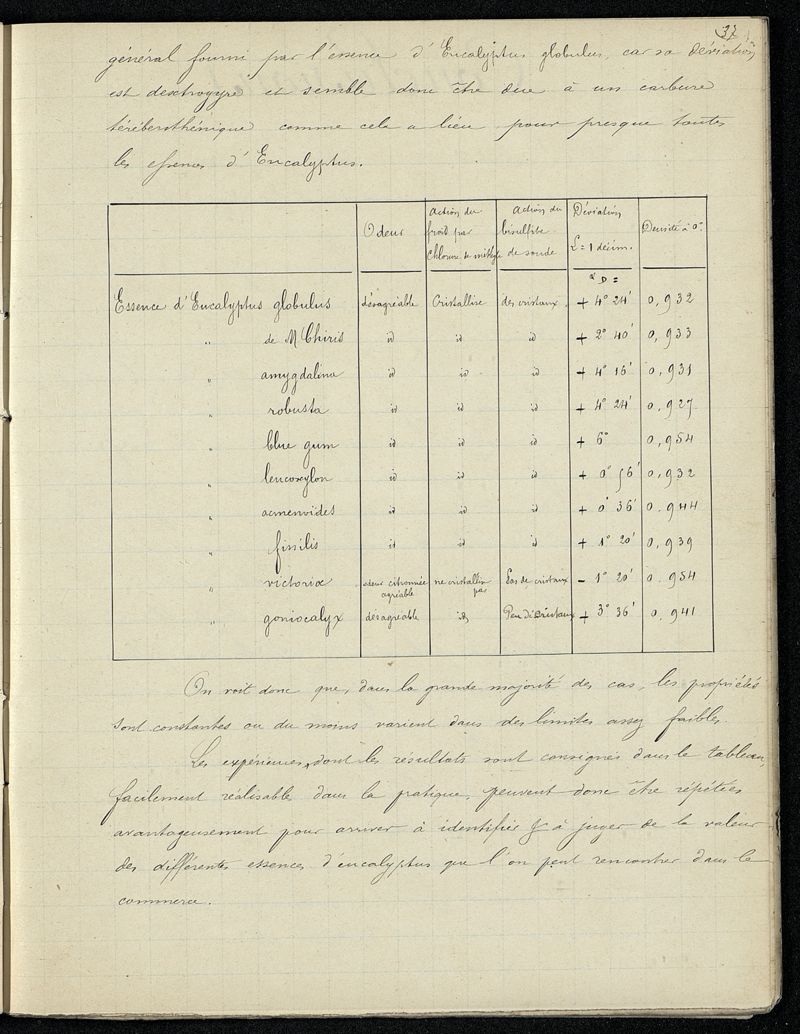 37
général fourni par l'essence d'Eucalyptus globulus, car sa déviation
est dextrogyre et semble donc être due à un carbure
térébenthénique comme cela a lieu pour presque toutes
les essences d'Eucalyptus.
Odeur | Action du froid par chlorure de méthyle | Action du bisulfite de soude | Déviation L = 1 décim. | Densité à 0°
α D =
Essence d'Eucalyptus globulus | désagréable | Cristallise | des cristaux | + 4° 24' | 0,932
" de M Chiris | id | id | id | + 2° 40' | 0,933
" amygdalina | id | id | id | + 4° 16' | 0,931
" robusta | id | id | id | + 4° 24' | 0,927
" blue gum | id | id | id | + 6° | 0,954
" leucoxylon | id | id | id | + 0° 56' | 0,932
" acmenoïdes | id | id | id | + 0° 36' | 0,944
" fissilis | id | id | id | + 1° 20' | 0,939
" victoriæ | odeur citronnée agréable | ne cristallise pas | Pas de cristaux | - 1° 20' | 0,954
" goniocalyx | désagréable | id | Peu de cristaux | + 3° 36' | 0,941
On voit donc que, dans la grande majorité des cas, les propriétés
sont constantes ou du moins varient dans des limites assez faibles.
Les expériences, dont les résultats sont consignés dans le tableau,
facilement réalisable dans la pratique, peuvent donc être répétées
avantageusement pour arriver à identifier & à juger de la valeur
des différentes essences d'eucalyptus que l'on peut rencontrer dans le
commerce.